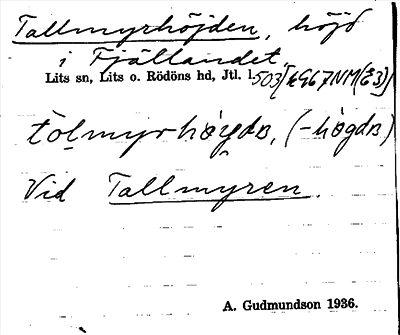 Tallmyrhöjden, höjd
i Fjällandet.
Lits sn, Lits o. Rödöns hd, Jtl. l.
tol̲myrhöɡdɞ, (-höɡdɞ)
Vid Tallmyren.
A. Gudmundson 1936.